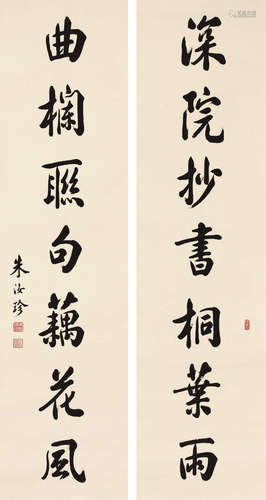 深院抄書桐葉雨
曲欄聯句藕花風
朱汝珍